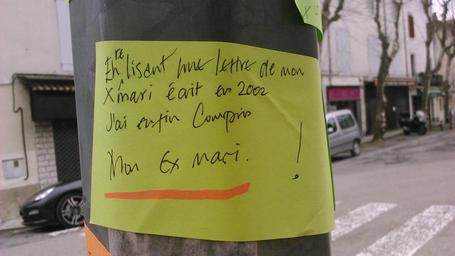 En relisant une lettre de mon
X mari écrit en 2002
J'ai enfin Compris
Mon Ex mari. !